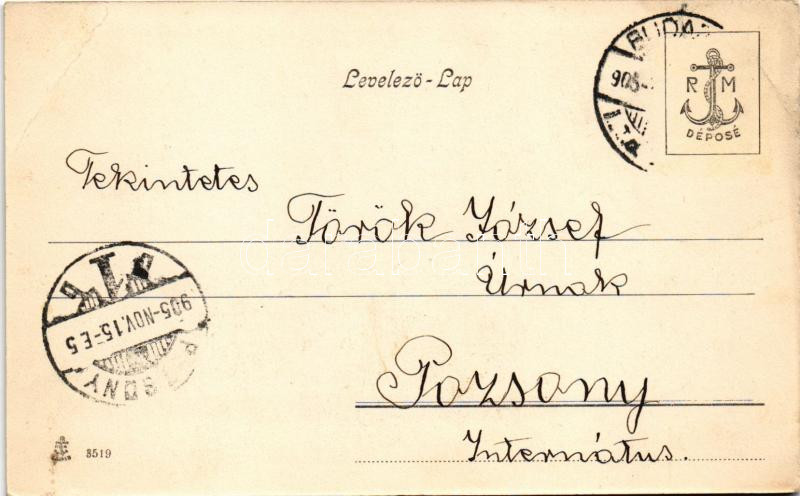 Levelező-Lap
905-
R M
DÉPOSÉ
Tekintetes
Török József
Úrnak
905-NOV.15-E5
Pozsony
Internátus.
3519
darabanth